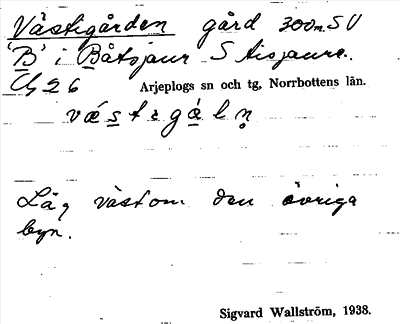 Västigården gård 300m SV
'B' i Båtsjaur S tisjaure.
Cg 26 Arjeplogs sn och tg, Norrbottens län.
væstıgáln̥
Låg väst om den övriga
byn.
Sigvard Wallström, 1938.